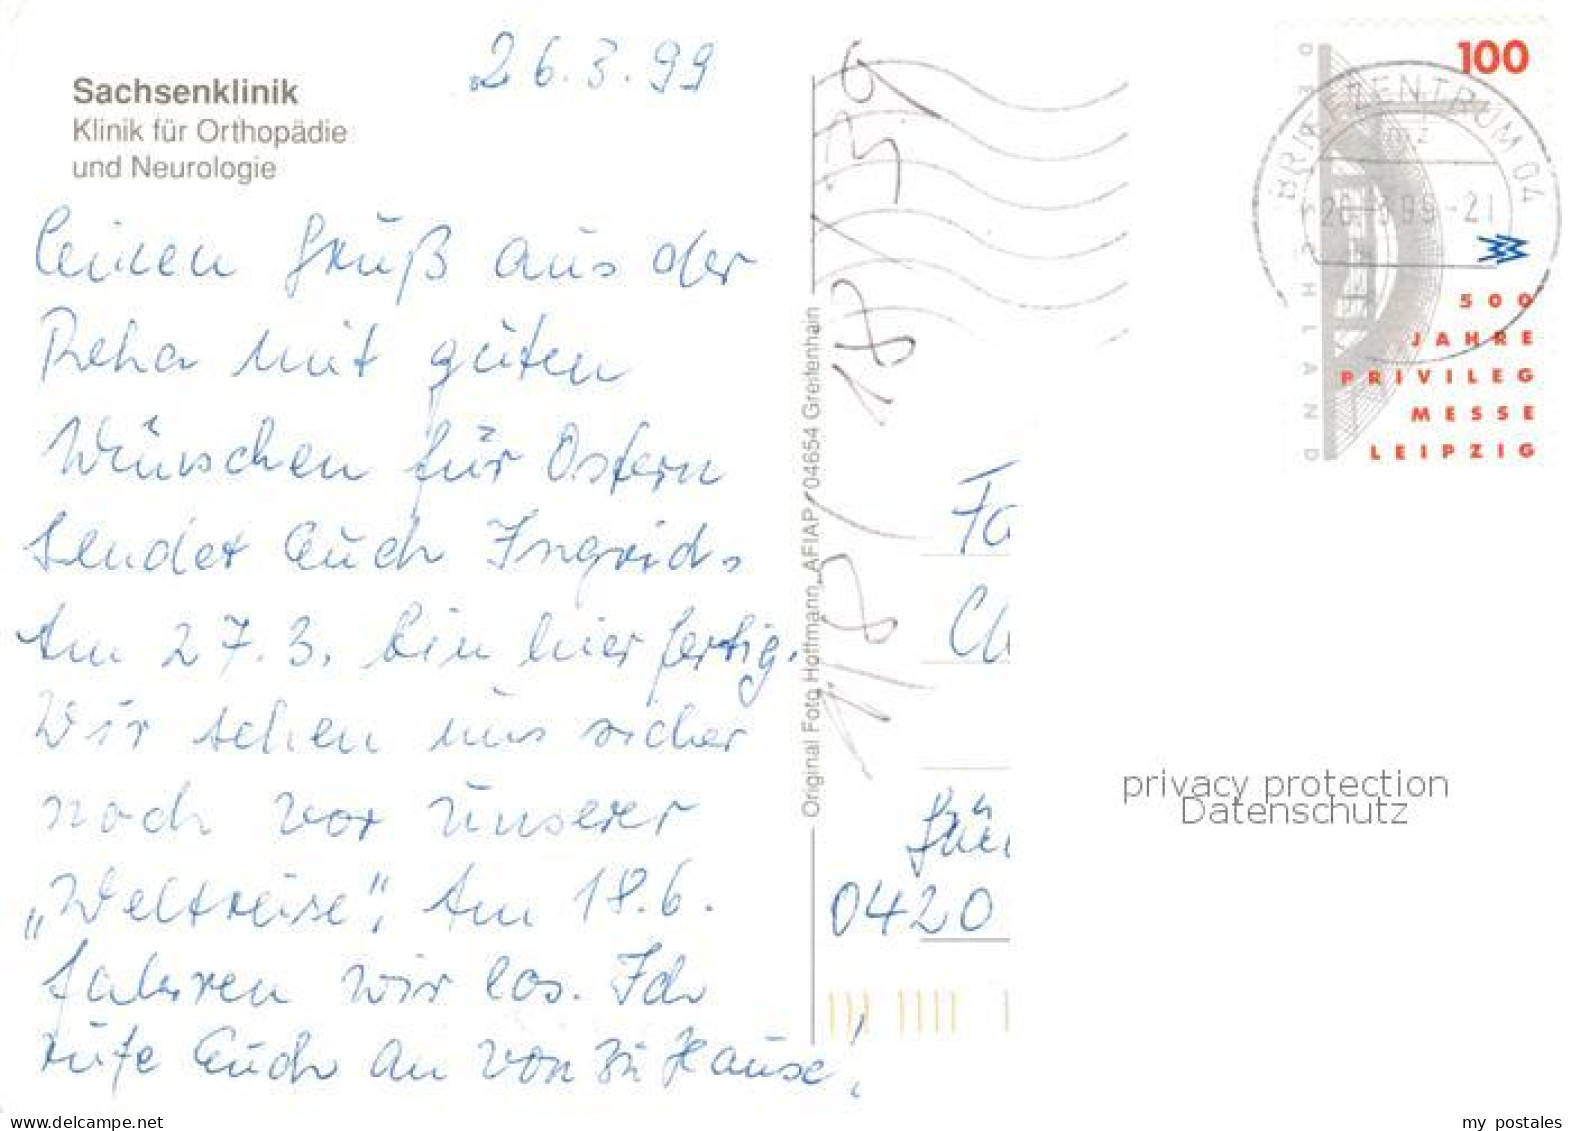 26.3.99
Sachsenklinik
Klinik für Orthopädie
und Neurologie
Einen Gruß aus der
Reha mit guten
Wünschen für Ostern
sendet Euch Ingrid.
Am 27.3. bin hier fertig.
Wir sehen uns sicher
noch vor unserer
„Weltreise“. Am 18.6.
fahren wir los. Ich
rufe Euch an von zu Hause!
Original Foto Hoffmann, AFIAP, 04654 Greifenhain
100
DEUTSCHLAND
500
JAHRE
PRIVILEG
MESSE
LEIPZIG
BRIEFZENTRUM 04
mz
26.-3.99-21
Fa
0420
privacy protection
Datenschutz
www.delcampe.net
my_postales